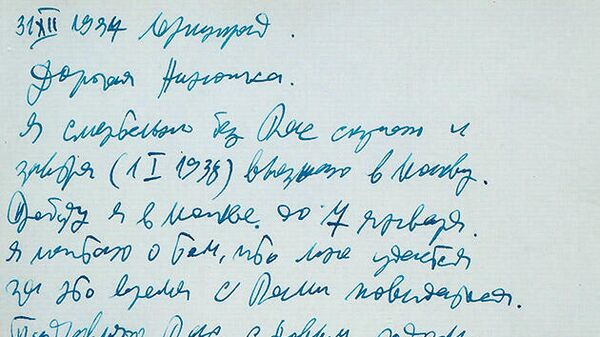 31 XII 1937 Ленинград.
Дорогая Ниночка.
Я смертельно без Вас скучаю и
завтра (1 I 1938) выезжаю в Москву.
Пробуду я в Москве до 7 января.
Я мечтаю о том, что мне удастся
за это время с Вами повидаться.
Поздравляю Вас с Новым годом